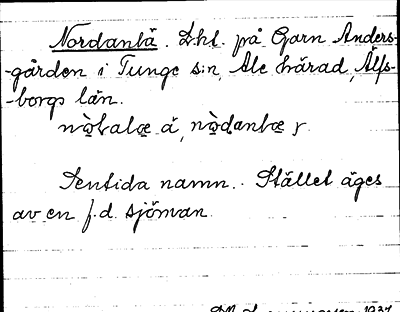 Nordanlä. Lht. på Garn Anders-
-gården i Tunge s:n, Ale härad, Älfs-
-borgs län.
Sentida namn. Stället äges
av en f.d. sjöman.
1931